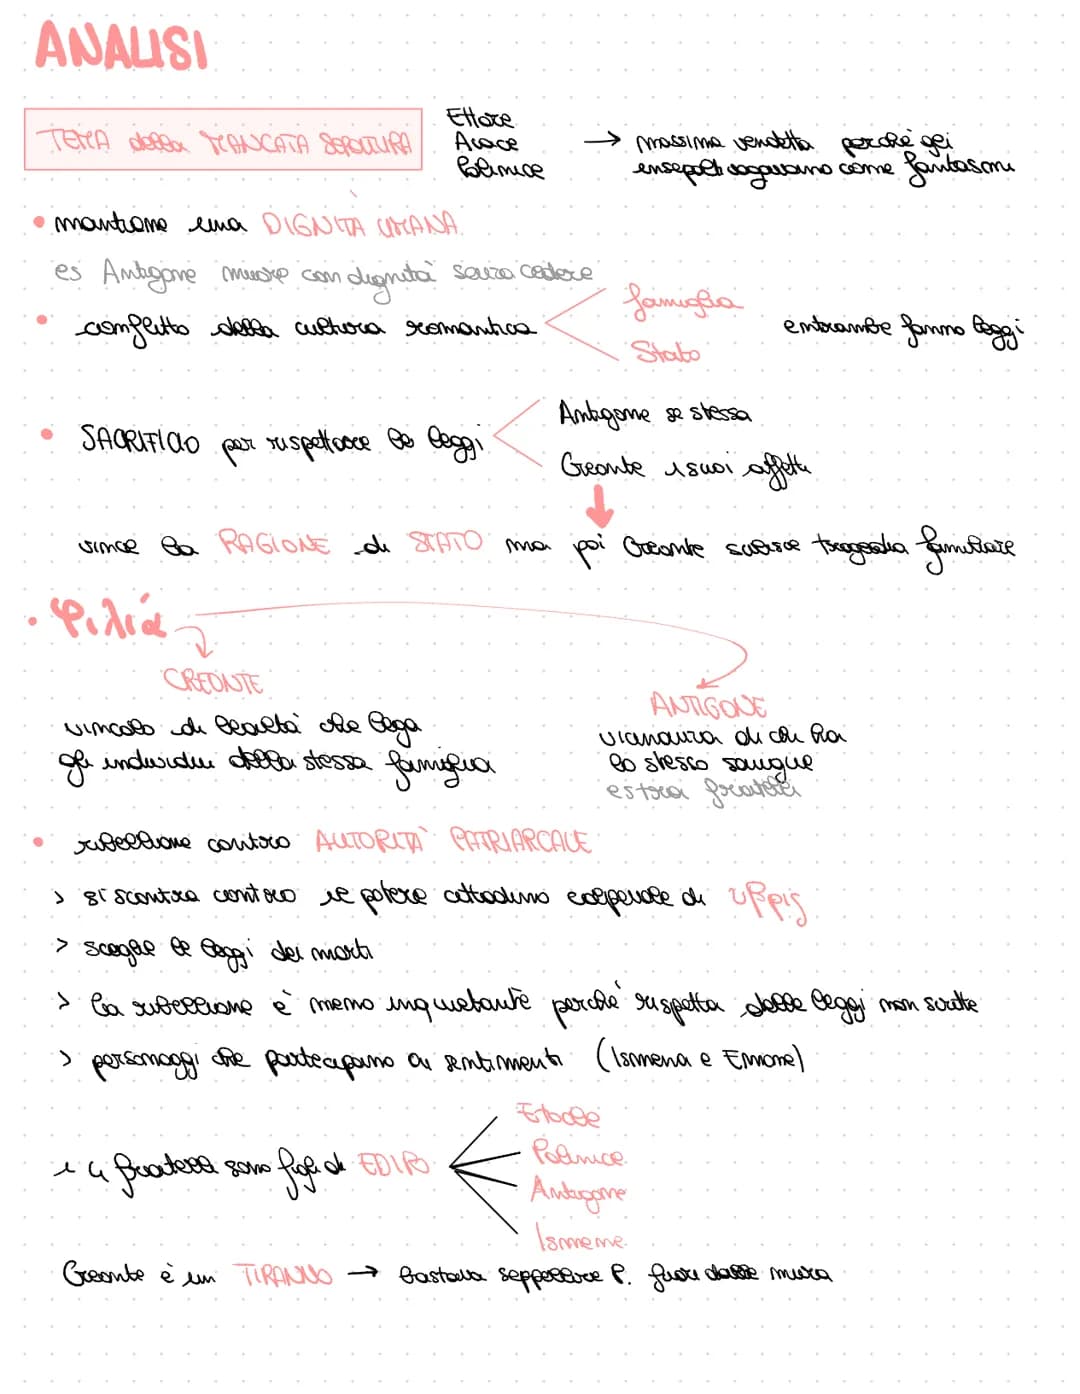 ANALISI
TEMA della MANCATA SEPOLTURA
Ettore
Aiace
Polinice
→ massima vendetta perché gli
insepolti vagavano come fantasmi
• mantiene una DIGNITÀ UMANA
es Antigone muore con dignità senza cedere
• conflitto della cultura romantica
famiglia
Stato
entrambe fanno leggi
• SACRIFICIO per rispettare le leggi
Antigone se stessa
Creonte i suoi affetti
vince la RAGIONE di STATO ma poi Creonte subisce tragedia familiare
• Φιλιά
CREONTE
vincolo di lealtà che lega
gli individui della stessa famiglia
ANTIGONE
vicinanza di chi ha
lo stesso sangue
es tra fratelli
• ribellione contro AUTORITÀ PATRIARCALE
> si scontra contro il potere cittadino colpevole di υβρις
> sceglie le leggi dei morti
> la ribellione è meno inquietante perché rispetta delle leggi non scritte
> personaggi che partecipano ai sentimenti (Ismena e Emone)
i 4 fratelli sono figli di EDIPO
Eteocle
Polinice
Antigone
Ismene
Creonte è un TIRANNO → bastava seppellire P. fuori dalle mura